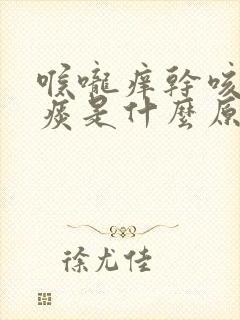 喉嚨痒幹咳
痰是什麼原
徐尤佳